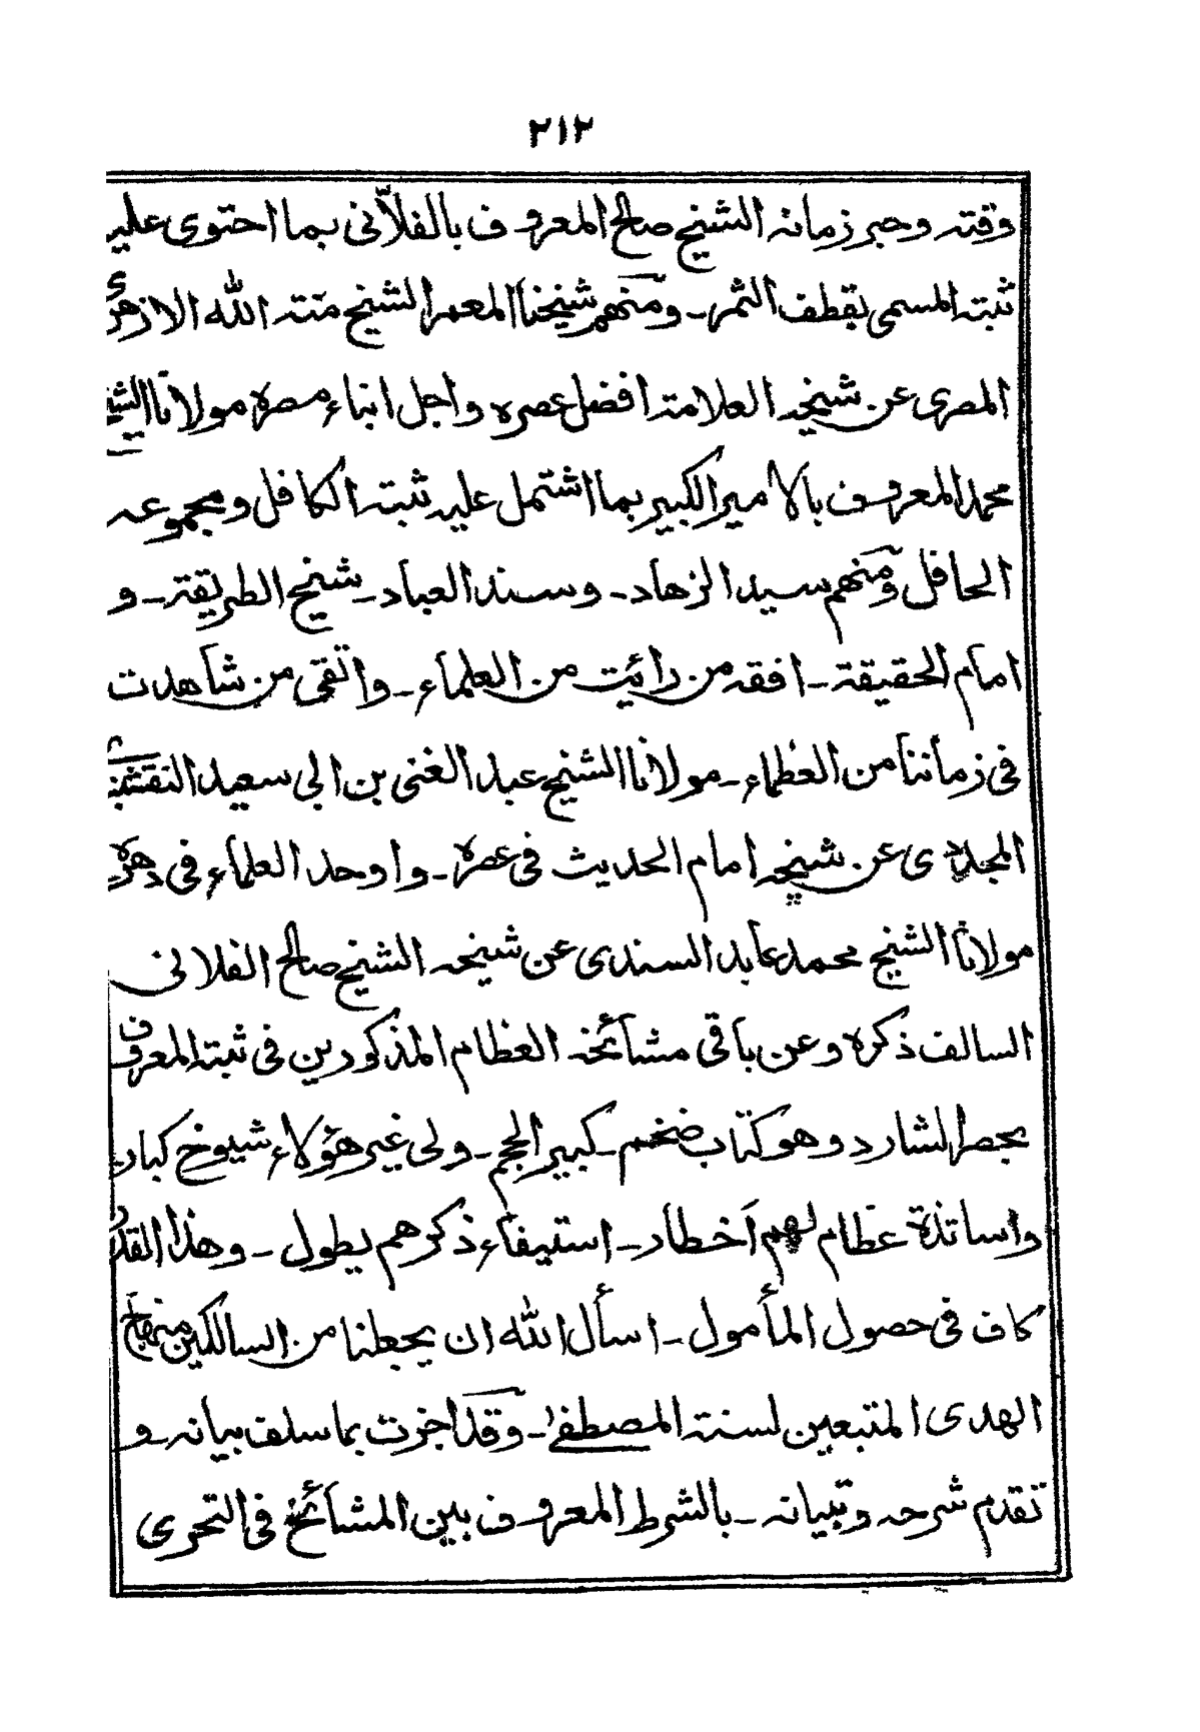 ٢١٢
وقته وحبر زمانه الشيخ صالح المعروف بالفلاّنى بما احتوى عليه
ثبته المسمى بقطف الثمر ـ ومنهم شيخنا المعمر الشيخ منة الله الازهرى
المصرى عن شيخه العلامة افضل عصره واجل ابناء مصره مولانا الشيخ
محمد المعروف بالامير الكبير بما اشتمل عليه ثبته الكافل ومجموعه
الحافل ومنهم سيد الزهاد ـ وسند العباد ـ شيخ الطريقة ـ و
امام الحقيقة ـ افقه من رائيت من العلماء ـ واتقى من شاهدت
فى زماننا من العظماء ـ مولانا الشيخ عبد الغنى بن ابى سعيد النقشبندى
المجددى عن شيخه امام الحديث فى عصره ـ واوحد العلماء فى دهره
مولانا الشيخ محمد عابد السندى عن شيخه الشيخ صالح الفلانى
السالف ذكره وعن باقى مشائخه العظام المذكورين فى ثبته المعروف
بحصر الشارد وهو كتاب ضخم ـ كبير الحجم ـ ولى غير هؤلاء شيوخ كبار
واساتذة عظام لهم اخطار ـ استيفاء ذكرهم يطول ـ وهذا القدر
كاف فى حصول المأمول ـ اسأل الله ان يجعلنا من السالكين منهاج
الهدى المتبعين لسنة المصطفٰى ـ وقد اجزت بما سلف بيانه ـ و
تقدم شرحه وتبيانه ـ بالشرط المعروف بين المشائخ فى التحرى